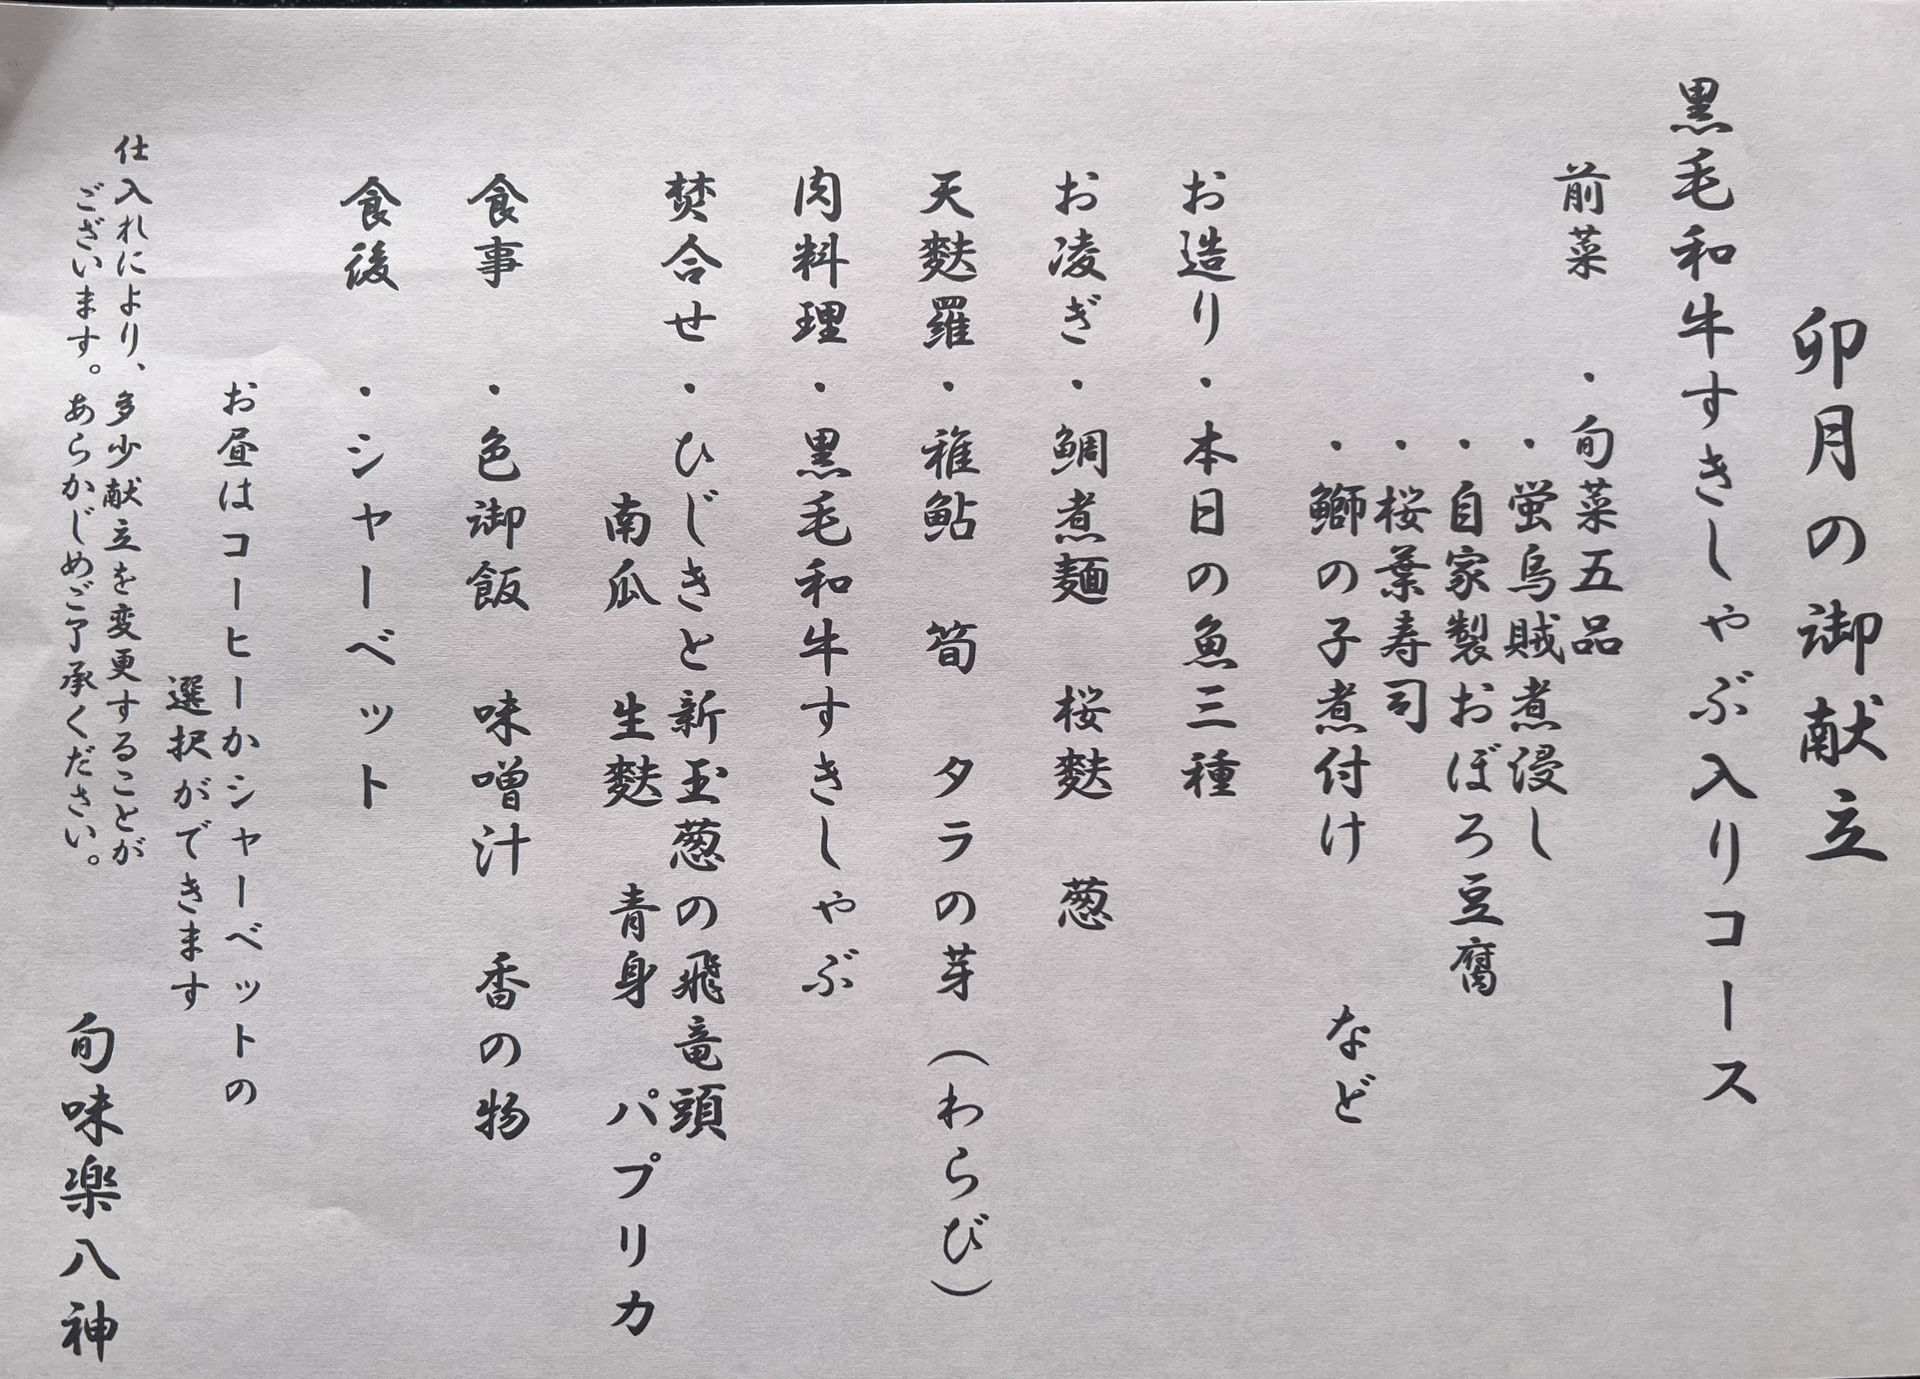 卯月の御献立
黒毛和牛すきしゃぶ入りコース
前菜 ・旬菜五品
・蛍烏賊煮浸し
・自家製おぼろ豆腐
・桜葉寿司
・鰤の子煮付け など
お造り ・本日の魚三種
お凌ぎ ・鯛煮麺 桜麩 葱
天麩羅 ・稚鮎 筍 タラの芽（わらび）
肉料理 ・黒毛和牛すきしゃぶ
焚合せ ・ひじきと新玉葱の飛竜頭
南瓜 生麩 青身 パプリカ
食事 ・色御飯 味噌汁 香の物
食後 ・シャーベット
お昼はコーヒーかシャーベットの
選択ができます
仕入れにより、多少献立を変更することが
ございます。あらかじめご了承ください。
旬味楽八神